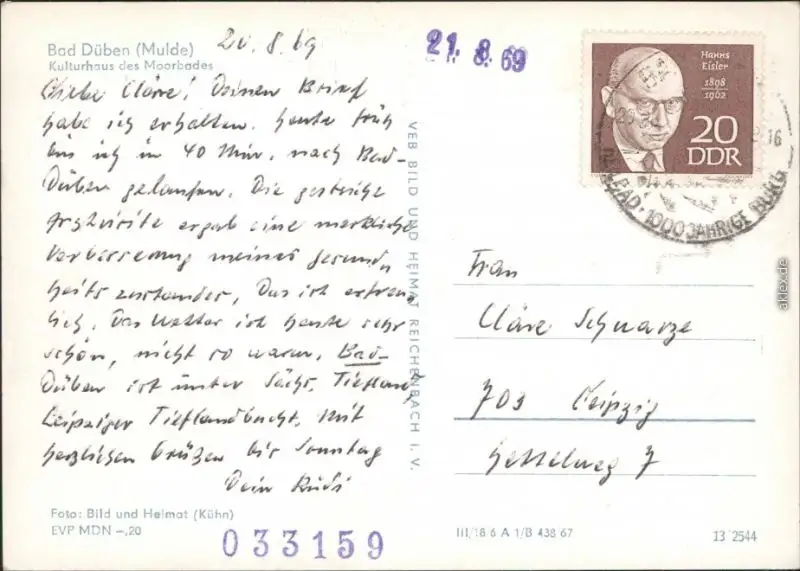 Bad Düben (Mulde)
Kulturhaus des Moorbades
20.8.69
21.8.69
Liebe Cläre! Deinen Brief
habe ich erhalten. Heute früh
bin ich in 40 Min. nach Bad-
Düben gelaufen. Die gestrige
Arztvisite ergab eine merkliche
Verbesserung meines Gesund
heitszustandes, Das ist erfreu
lich. Das Wetter ist heute sehr
schön, nicht so warm. Bad-
Düben ist unter Sächs. Tiefland
Leipziger Tieflandbucht. Mit
herzlichen Grüßen bis Sonntag
Dein Rudi
Foto: Bild und Heimat (Kühn)
EVP MDN -,20
033159
VEB BILD UND HEIMAT REICHENBACH I. V.
Hanns
Eisler
1898
1962
20
DDR
BAD · 1000 JÄHRIGE BURG
16
Frau
Cläre Schwarze
703 Leipzig
7
III/18 6 A 1/B 438 67
13 2544
akpool.de